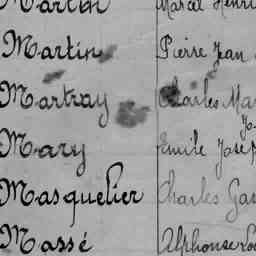 Martin Marcel Henri
Martin Pierre Jean
Martray Charles Mar
Mary Emile Josep
Masquelier Charles Gas
Massé Alphonse Lou